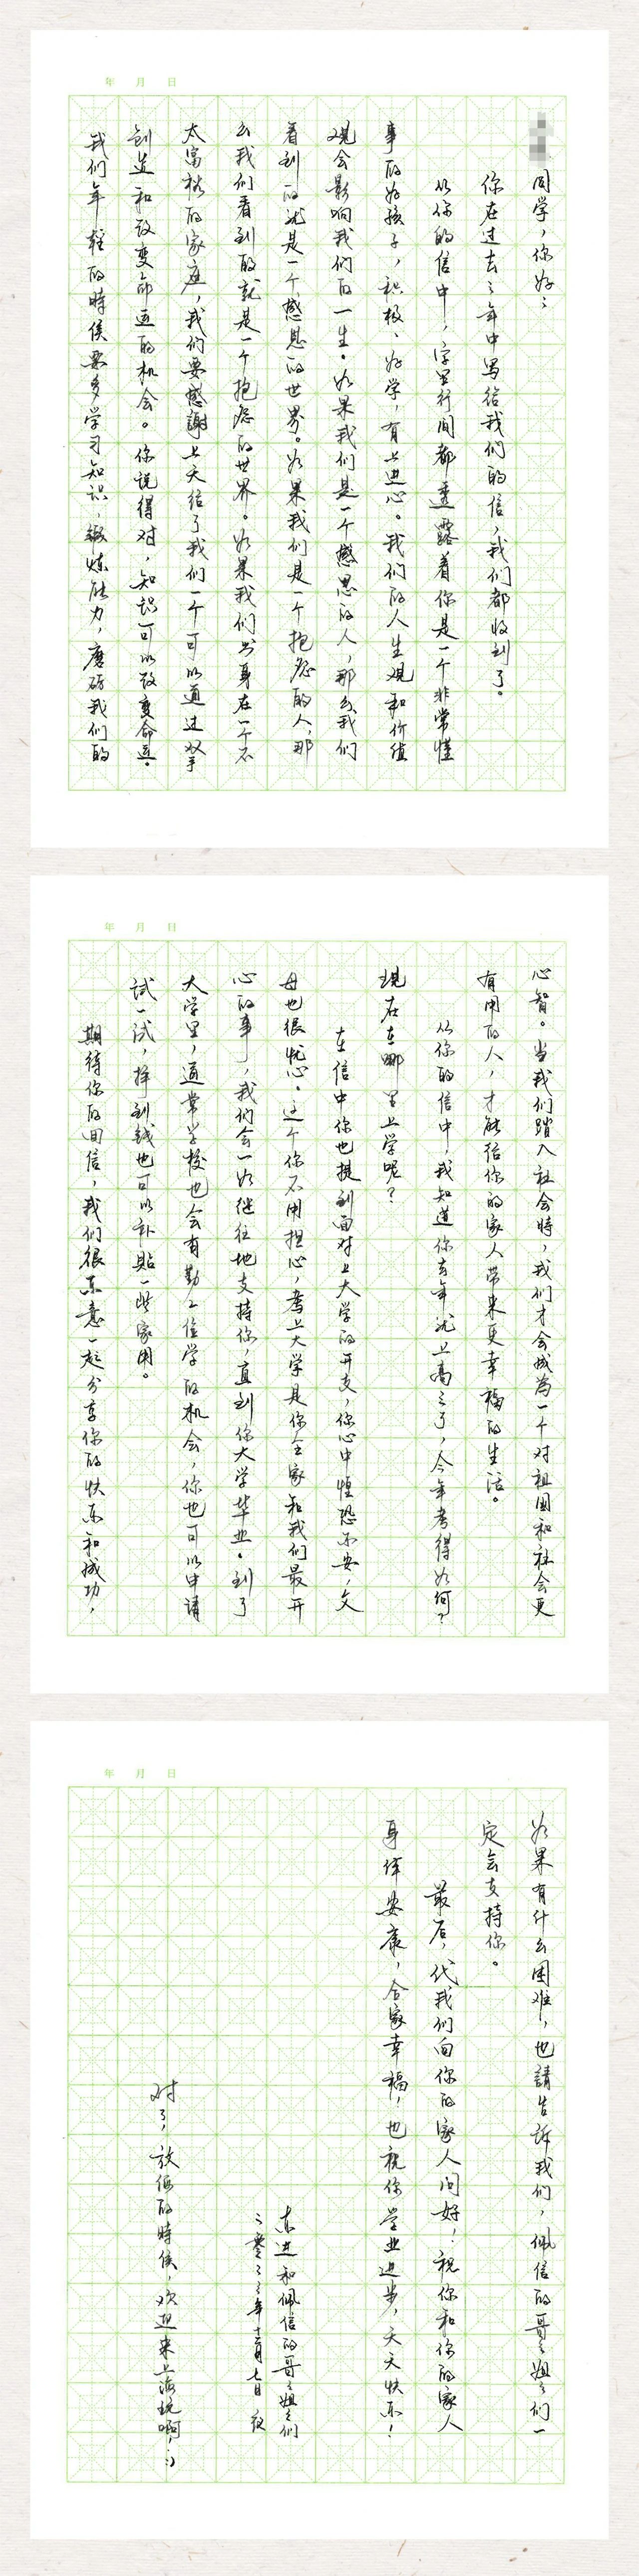 年 月 日
同学，你好：
你在过去三年中写给我们的信，我们都收到了。
从你的信中，字里行间都透露着你是一个非常懂
事的好孩子，积极、好学，有上进心。我们的人生观和价值
观会影响我们的一生。如果我们是一个感恩的人，那么我们
看到的就是一个感恩的世界。如果我们是一个抱怨的人，那
么我们看到的就是一个抱怨的世界。如果我们出身在一个不
太富裕的家庭，我们要感謝上天给了我们一个可以通过双手
创造和改变命运的机会。你说得对，知识可以改变命运。
我们年轻的時候要多学习知识，锻炼能力，磨砺我们的
年 月 日
心智。当我们踏入社会時，我们才会成為一个对祖国和社会更
有用的人，才能给你的家人带来更幸福的生活。
从你的信中，我知道你去年就上高三了，今年考得如何？
现在在哪里上学呢？
在信中你也提到面对上大学的开支，你心中惶恐不安，父
母也很忧心。这个你不用担心，考上大学是你全家和我们最开
心的事了，我们会一如继往地支持你，直到你大学毕业。到了
大学里，通常学校也会有勤工俭学的机会，你也可以申请
试一试，挣到钱也可以补贴一些家用。
期待你的回信，我们很乐意一起分享你的快乐和成功，
年 月 日
如果有什么困难，也請告訴我们，佩信的哥哥姐姐们一
定会支持你。
最后，代我们向你的家人问好！祝你和你的家人
身体安康，合家幸福，也祝你学业进步，天天快乐！
乐进和佩信的哥哥姐姐们
二零二三年十二月七日 夜
对了，放假的時候，欢迎来上海玩啊，:)